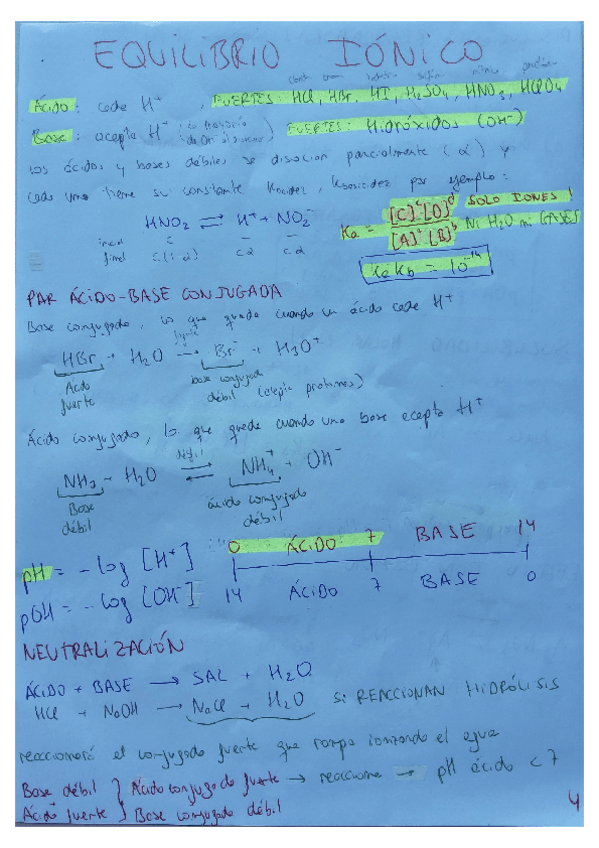 EQUILIBRIO IÓNICO
Ácido: cede H⁺, FUERTES: HCl, HBr, HI, H₂SO₄, HNO₃, HClO₄
Base: acepta H⁺ FUERTES: Hidróxidos (OH⁻)
Los ácidos y bases débiles se disocian parcialmente (α) y
cada uno tiene su constante Kacidez, Kbasicidez por ejemplo:
HNO₂ ⇌ H⁺ + NO₂⁻
Ka = [C]ᶜ[D]ᵈ / [A]ᵃ[B]ᵇ SOLO IONES! Ni H₂O ni GASES
inicial c — —
final c(1-α) cα cα
Ka·Kb = 10⁻¹⁴
PAR ÁCIDO-BASE CONJUGADA
Base conjugada, lo que queda cuando un ácido cede H⁺
fuerte
HBr + H₂O → Br⁻ + H₃O⁺
Ácido fuerte base conjugada débil (acepta protones)
Ácido conjugado, lo que queda cuando una base acepta H⁺
débil
NH₃ + H₂O ⇌ NH₄⁺ + OH⁻
Base débil ácido conjugado débil
0 ÁCIDO 7 BASE 14
pH = -log [H⁺]
14 ÁCIDO 7 BASE 0
pOH = -log [OH⁻]
NEUTRALIZACIÓN
ÁCIDO + BASE → SAL + H₂O
HCl + NaOH → NaCl + H₂O SI REACCIONAN HIDRÓLISIS
reaccionará el conjugado fuerte que rompa ionizando el agua
Base débil } Ácido conjugado fuerte → reacciona → pH ácido < 7
Ácido fuerte } Base conjugado débil
4